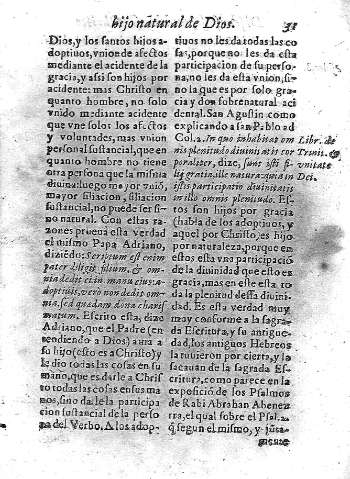 hijo natural de Dios. 31
Dios, y los santos hijos a-
doptiuos, vnion de afectos
mediante el accidente de la
gracia, y asi son hijos por
accidente: mas Christo en
quanto hombre, no solo
vnido mediante accidente
que vne solos los afectos
y voluntades, mas vnion
personal sustancial, que en
quanto hombre no tiene
otra persona que la misma
diuina: luego mayor vniõ,
mayor filiacion, filiacion
sustancial, no puede ser si-
no natural. Con estas ra-
zones prueua esta verdad
el mismo Papa Adriano,
diziẽdo: Scriptum est enim
pater diligit filium, & om-
nia dedit ei in manu eius: a-
doptiuis, vero non dedit om-
nia, sed quædam dona charis-
matum. Escrito esta, dize
Adriano, que el Padre (en
tendiendo a Dios) ama a
su hijo (esto es a Christo) y
le dio todas las cosas en su
mano, que es darle a Chris
to todas las cosas en sus ma
nos, sino darle la participa
cion sustancial de la perso
na del Verbo. A los adop-
tiuos no les da todas las co
sas, porque no les da esta
participacion de su perso-
na, no les da esta vnion, si-
no la que es por solo gra-
cia y don sobrenatural aci
dental. San Agustin como
explicando a san Pablo ad
Col. 2. In quo inhabitat om
nis plenitudo diuinitatis cor
poraliter, dize, sunt isti si-
lij gratia, ille natura: quia in
istis participatio diuinitatis
in illo omnis plenitudo. Es-
tos son hijos por gracia
(habla de los adoptiuos, y
aquel por Christo, es hijo
por naturaleza, porque en
estos esta vna participació
de la diuinidad que esto es
gracia, mas en este esta to
da la plenitud dessa diuini-
dad. Es esta verdad muy
muy conforme a la sagra-
da Escritura, y su antigue-
dad, los antiguos Hebreos
la tuuieron por cierta, y la
sacauan de la sagrada Es-
critura, como parece en la
exposició de los Psalmos
de Rabi Abrahan Abenez
rra, el qual sobre el Psal. 2.
q̃ segun el mismo, y justa
mente
Libr. de
Trinit. &
vnitate
Dei.